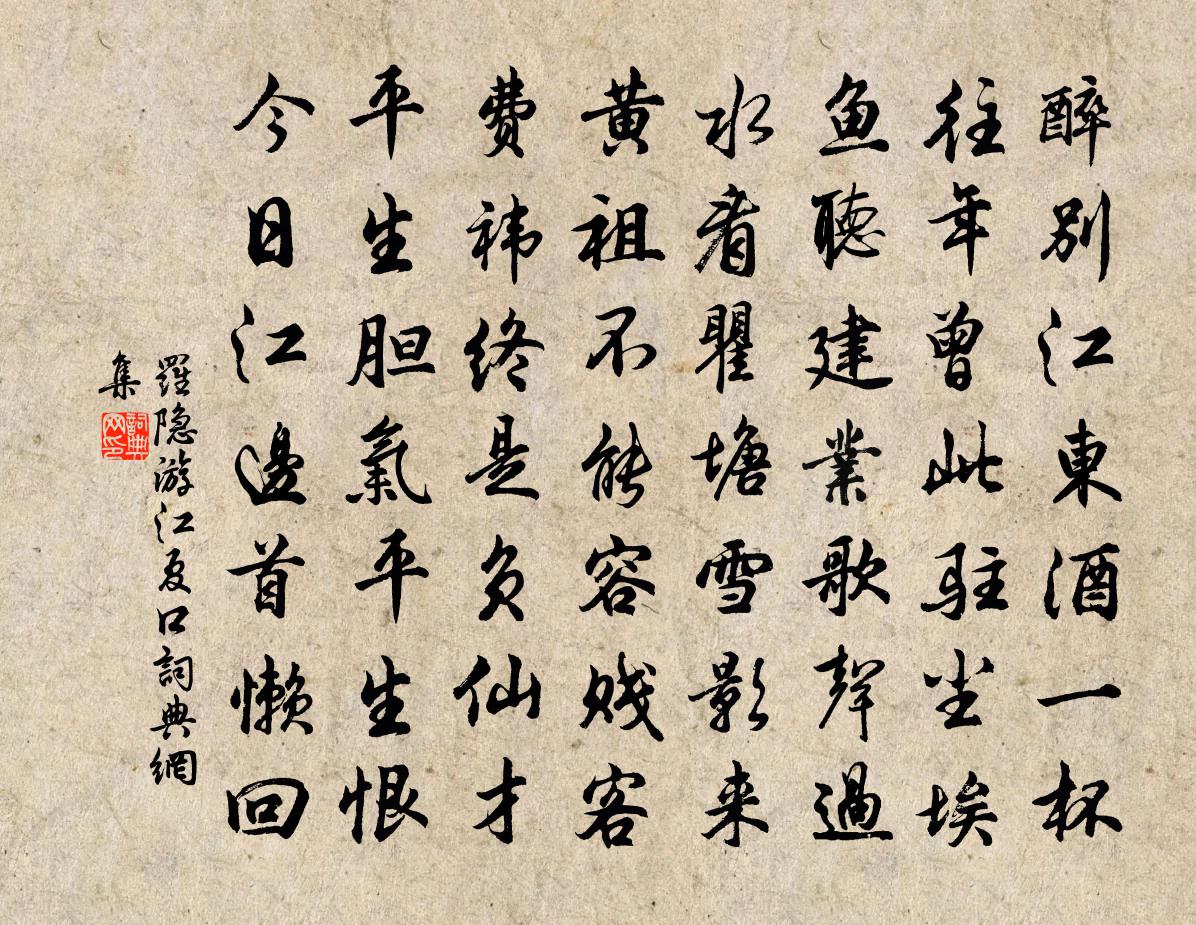 醉别江東酒一杯
往年曾此駐尘埃
鱼聽建業歌聲過
水看瞿塘雪影来
黄祖不能容贱客
費祎终是负仙才
平生胆氣平生恨
今日江邊首懒回
羅隐游江夏口詞典網
集
詞典网印